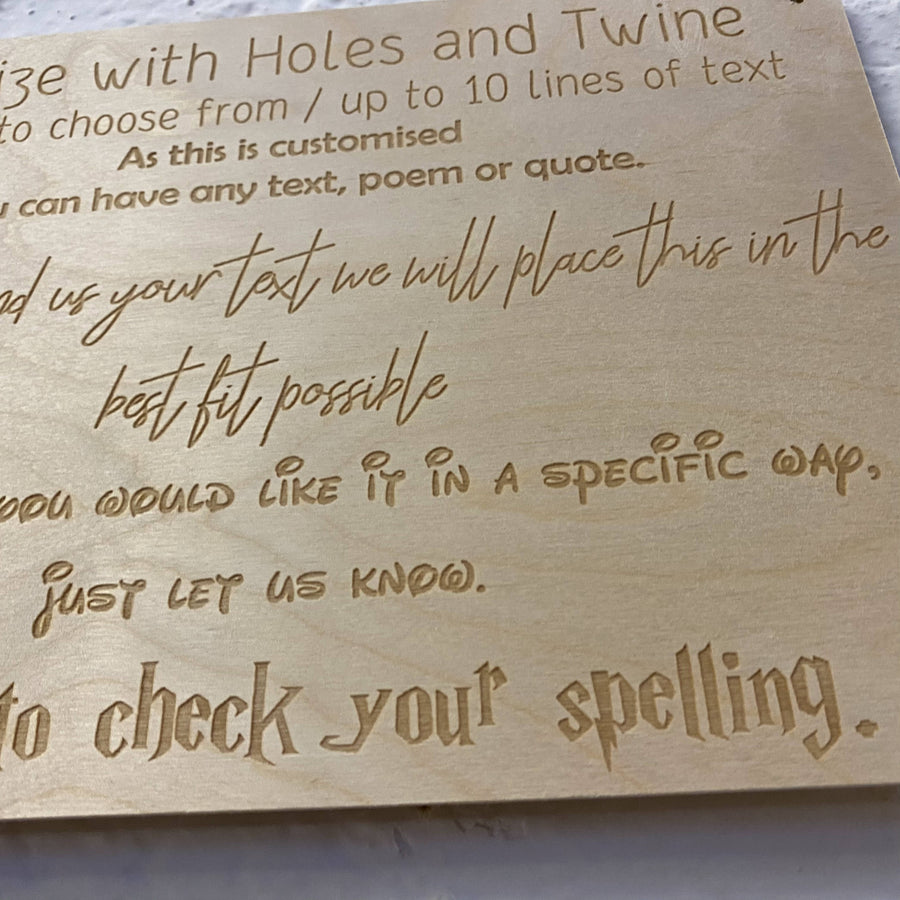 ize with Holes and Twine
to choose from / up to 10 lines of text
As this is customised
can have any text, poem or quote.
us your text we will place this in the
best fit possible
you would like it in a specific way,
just let us know.
to check your spelling.